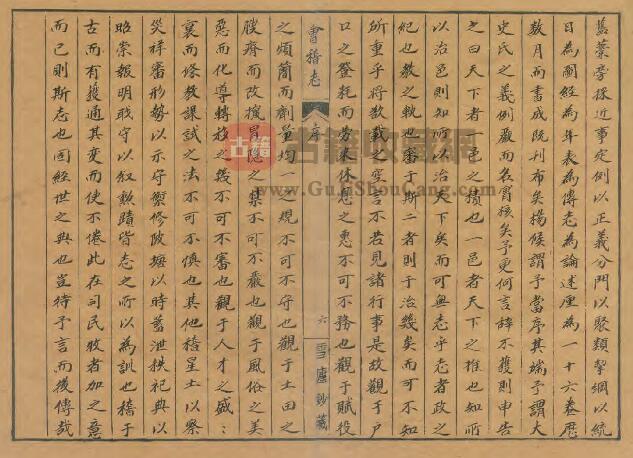 舊藁旁採近事定例以正義分門以聚類挈綱以統
目為圖經為年表為傳志為論述厘為一十六卷歷
數月而書成既刊布矣楊候謂予當序其端予謂大
史氏之義例嚴而名實核矣予更何言辞不獲則申告
之曰天下者一邑之積也一邑者天下之推也知所
以治邑則知所以治天下矣而可無志乎志者政之
紀也教之軌也審于斯二者則于治幾矣而可不知
所重乎將教載之空言不若見諸行事是故觀于户
口之登耗而勞来休息之惠不可不務也觀于賦役
會稽志
序
六
雪廬鈔藏
之煩簡而劑量均一之規不可不守也觀于土田之
膄瘠而改攛冒隱之禁不可不嚴也觀于風俗之美
惡而化導轉移之幾不可不審也觀于人才之盛
衰而條教課試之法不可不慎也其他稽星土以察
災祥審形勢以示守禦修陂塘以時蓄泄秩祀典以
昭崇報明職守以叙勲蹟皆志之所以為訓也稽于
古而有獲通其變而使不倦此在司民牧者加之意
而已則斯志也固經世之典也豈待予言而後傳哉
古籍收藏網
www.GuJiShouCang.com
古籍